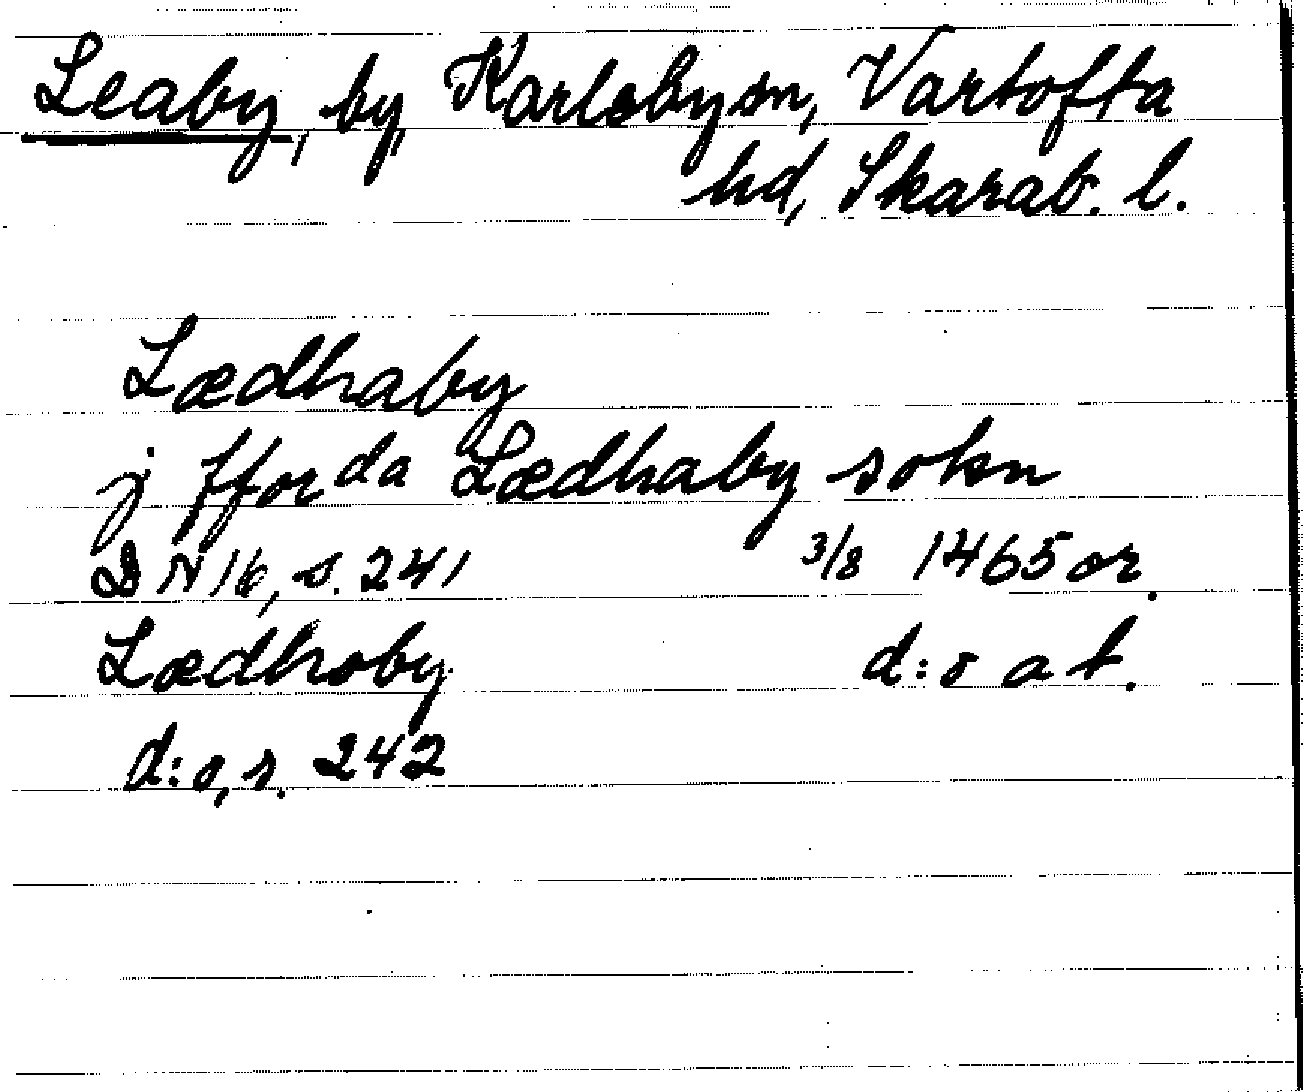 Leaby, by, Karleby sn, Vartofta
hd, Skarab. l.
Lædhaby
j fforda Lædhaby sokn
DN 16, s. 241 3/8 1465 or.
Lædhoby d:o at.
d:o, s. 242